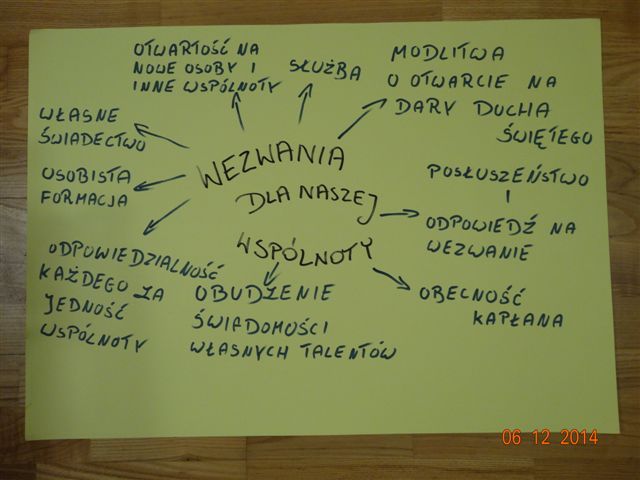 WEZWANIA
DLA NASZEJ
WSPÓLNOTY
OTWARTOŚĆ NA
NOWE OSOBY I
INNE WSPÓLNOTY
SŁUŻBA
MODLITWA
O OTWARCIE NA
DARY DUCHA
ŚWIĘTEGO
POSŁUSZEŃSTWO
I
ODPOWIEDŹ NA
WEZWANIE
OBECNOŚĆ
KAPŁANA
OBUDZENIE
ŚWIADOMOŚCI
WŁASNYCH TALENTÓW
ODPOWIEDZIALNOŚĆ
KAŻDEGO ZA
JEDNOŚĆ
WSPÓLNOTY
OSOBISTA
FORMACJA
WŁASNE
ŚWIADECTWO
06 12 2014